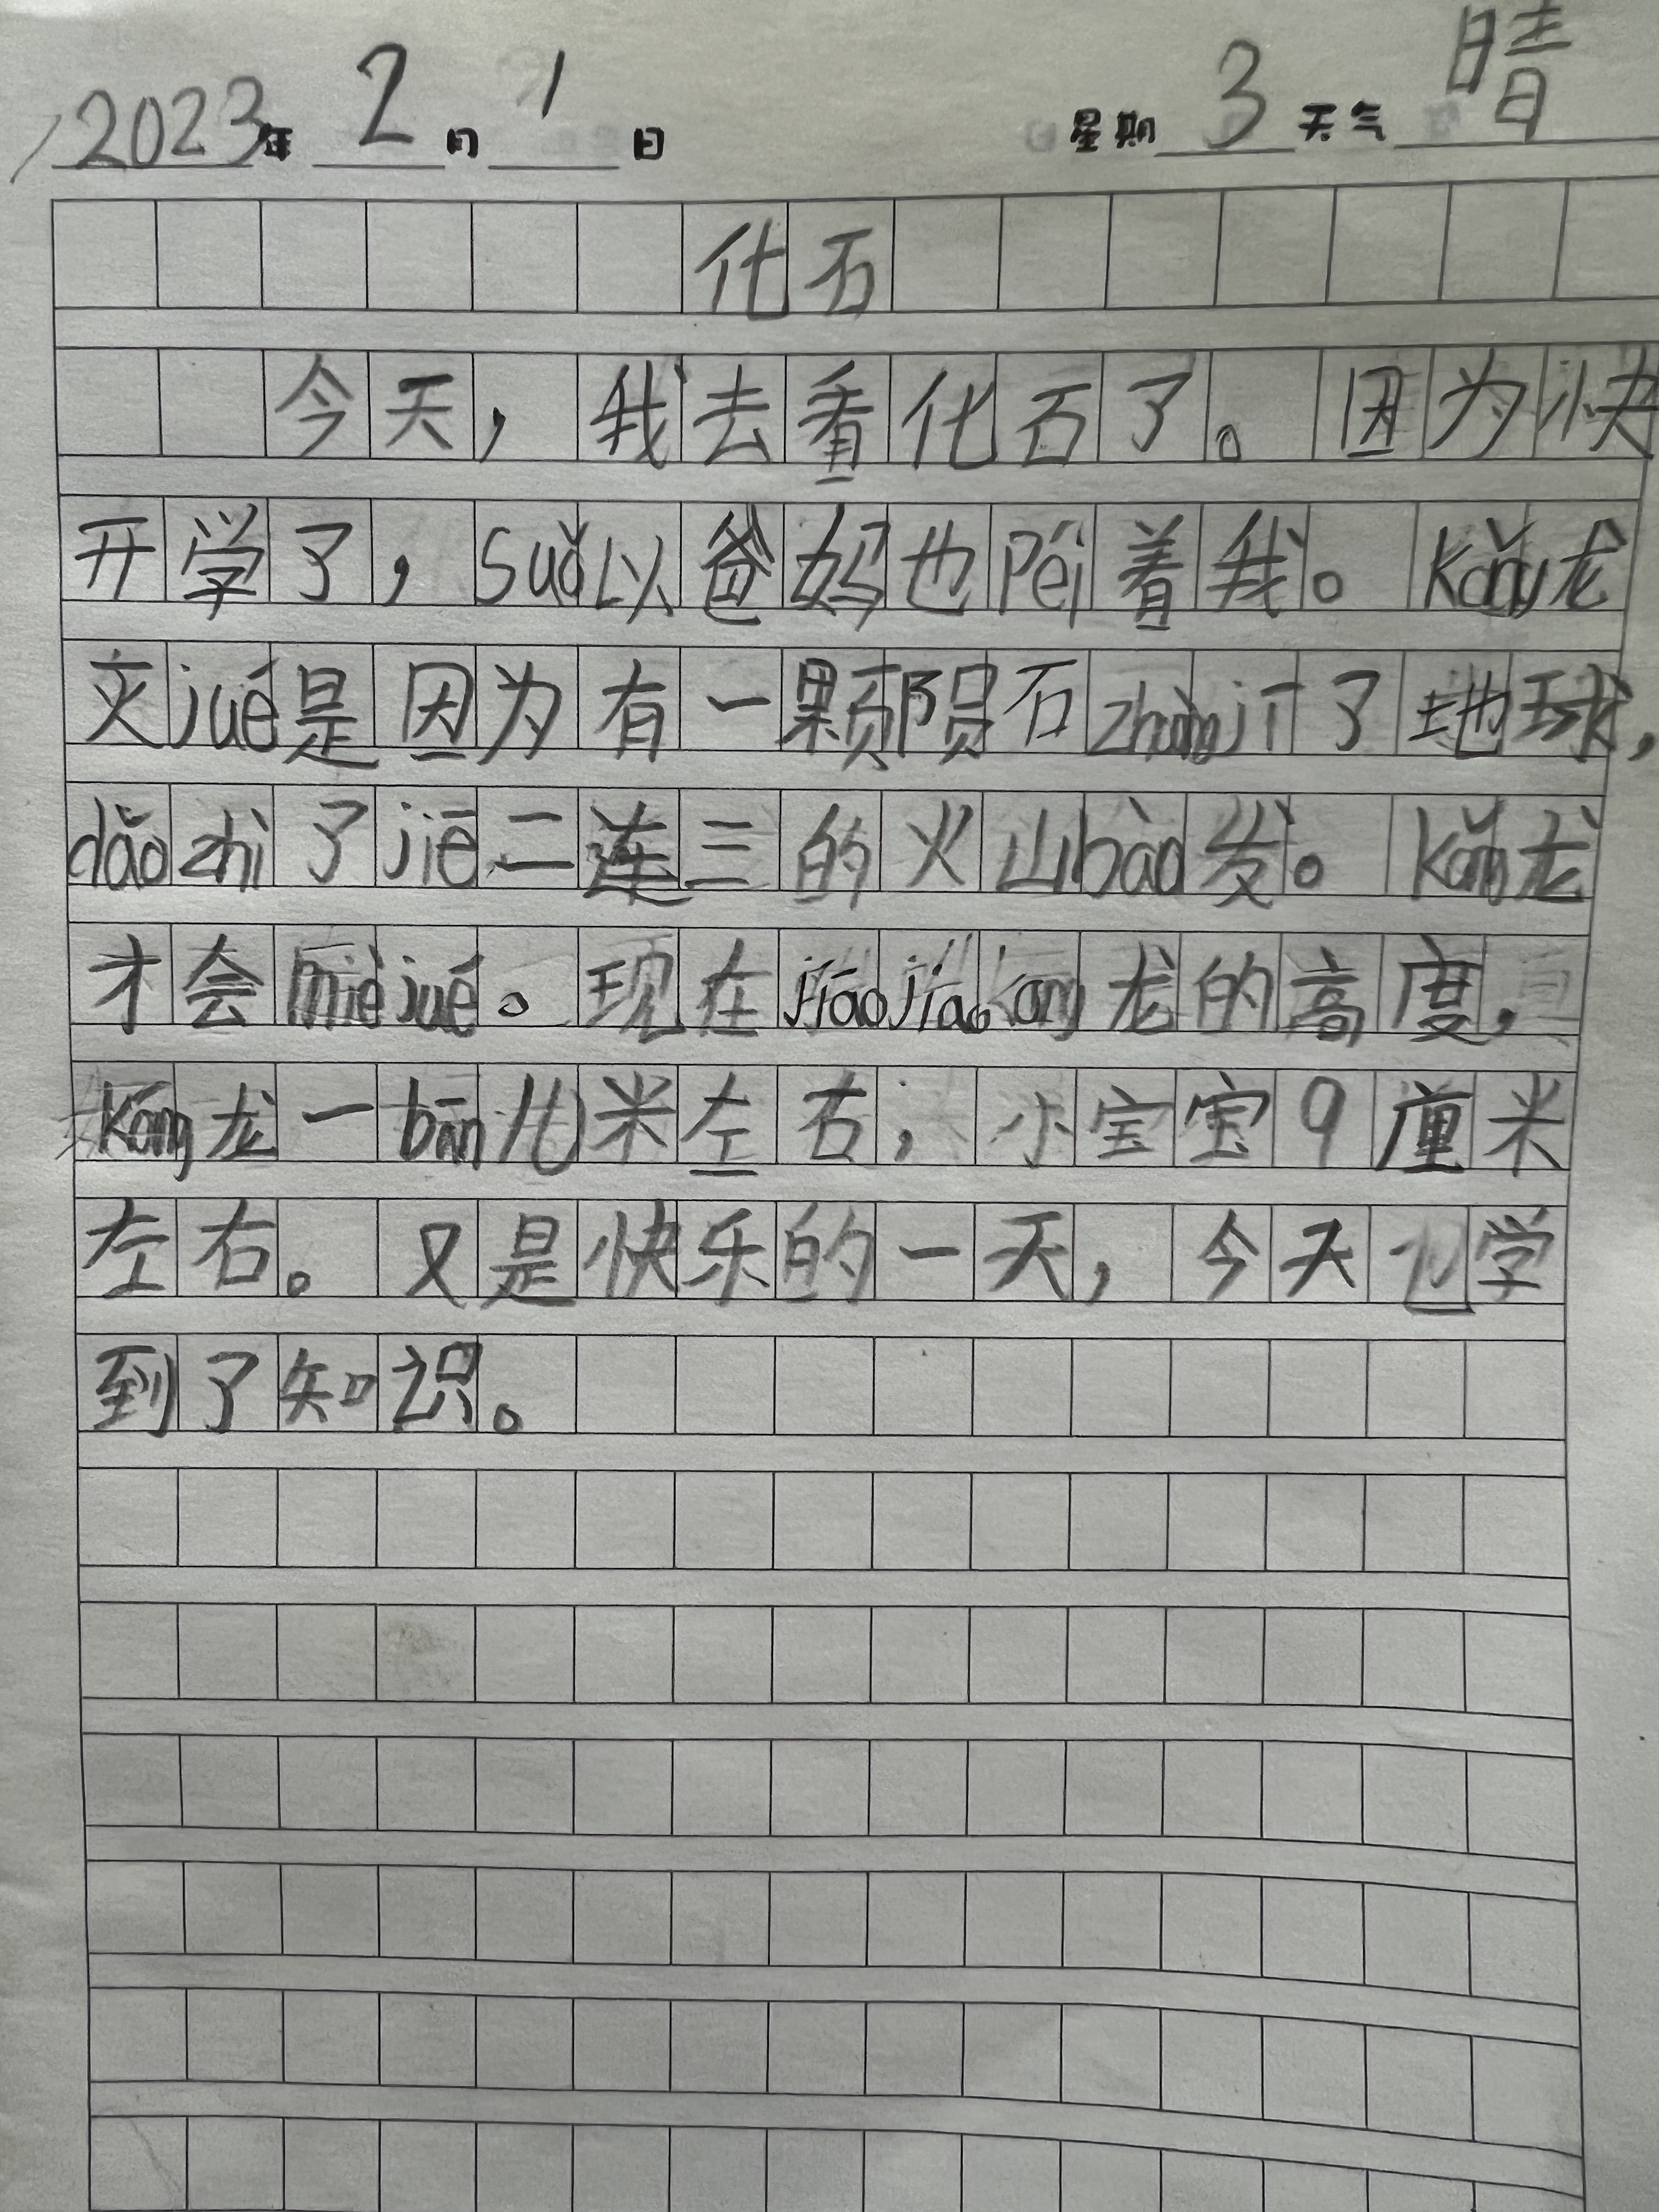 2023年 2月 1日 星期3 天气 晴
化石
今天，我去看化石了。因为快
开学了，suǒ以爸妈也péi着我。kǒng龙
灭jué是因为有一颗陨石zhuàngjī了地球，
dǎozhì了jiē二连三的火山bào发。kǒng龙
才会mièjué。现在jiāojiāokǒng龙的高度，
kǒng龙一bān几米左右，小宝宝9厘米
左右。又是快乐的一天，今天也学
到了知识。